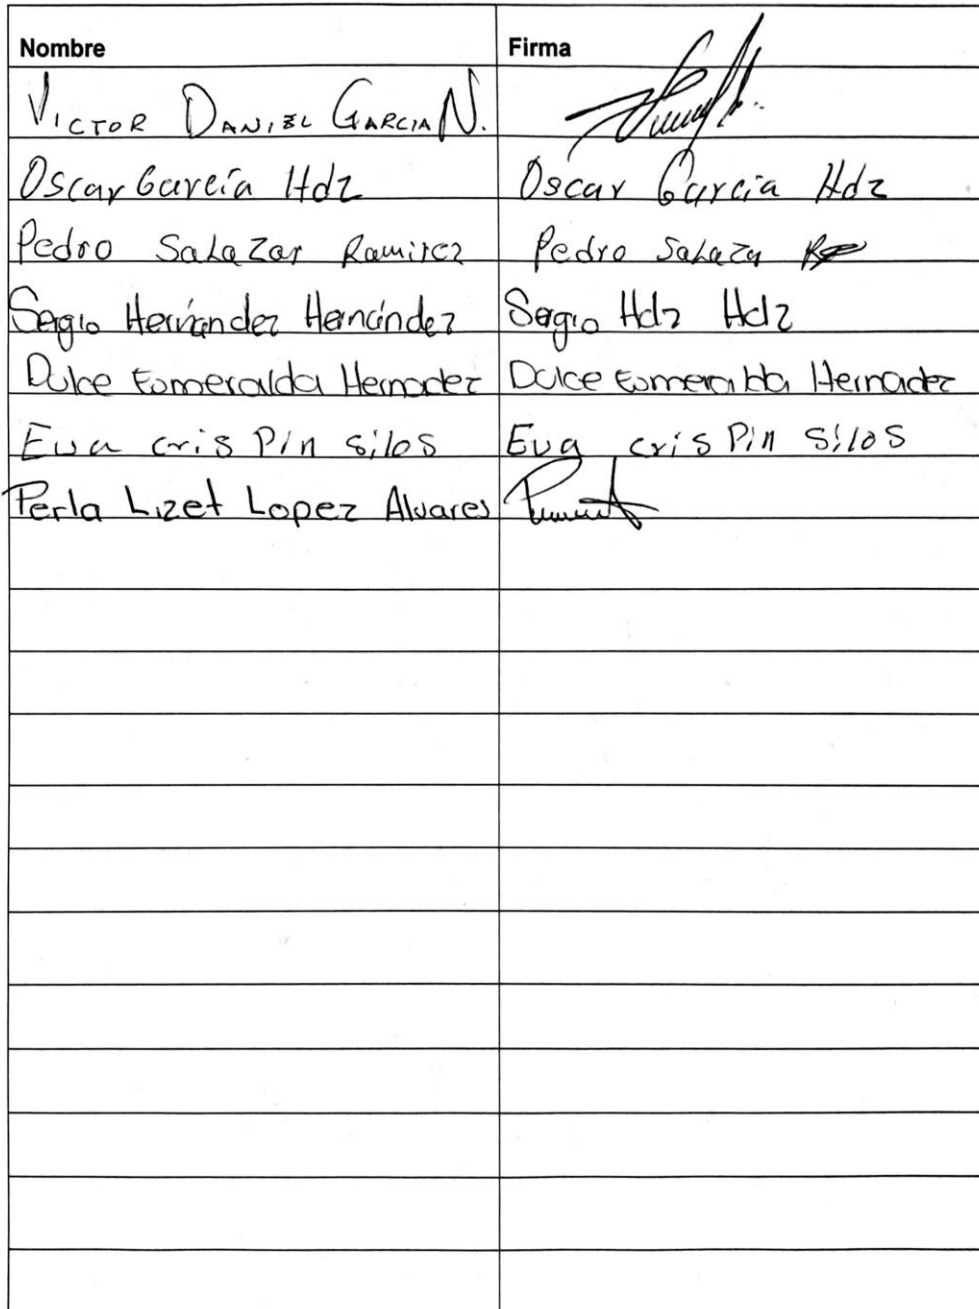 Nombre Firma
VICTOR DANIEL GARCIA N.
Oscar García Hdz Oscar Garcia Hdz
Pedro Salazar Ramirez Pedro Salaza
Sergio Hernández Hernández Sergio Hdz Hdz
Dulce Esmeralda Hernadez Dulce Esmeralda Hernadez
Eva cris Pin silos Eva cris Pin silos
Perla Lizet Lopez Alvares